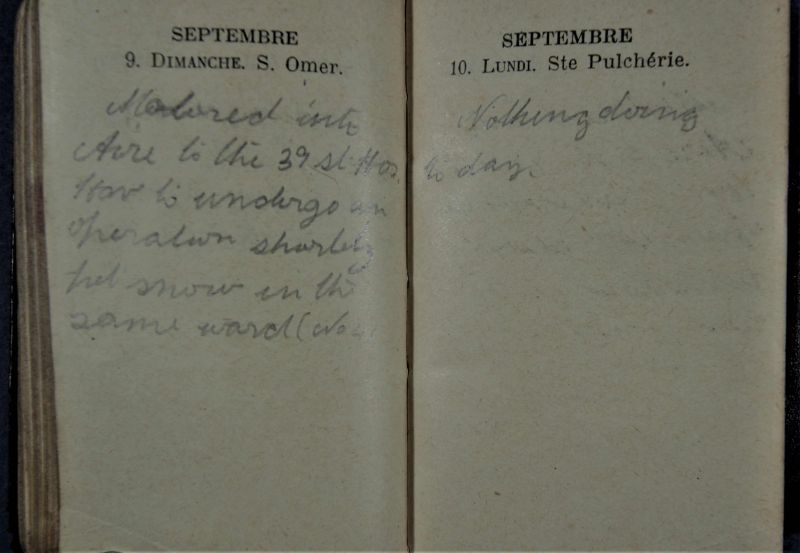 SEPTEMBRE
9. DIMANCHE. S. Omer.
Motored into
Aire to the 39 st Hos
to undergo an
operation shortly
in the
same ward (No
SEPTEMBRE
10. LUNDI. Ste Pulchérie.
Nothing doing
to day.